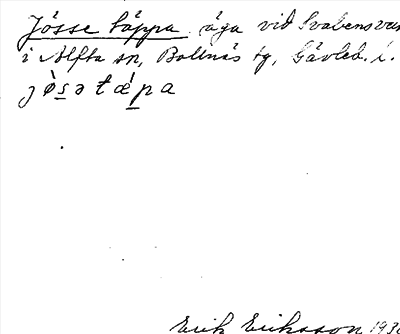 Jösse täppa äga vid Svabensver
i Alfta sn, Bollnäs tg, Gävleb. l.
jø̀s̲ə tæ̀p̲a
Erik Eriksson 193